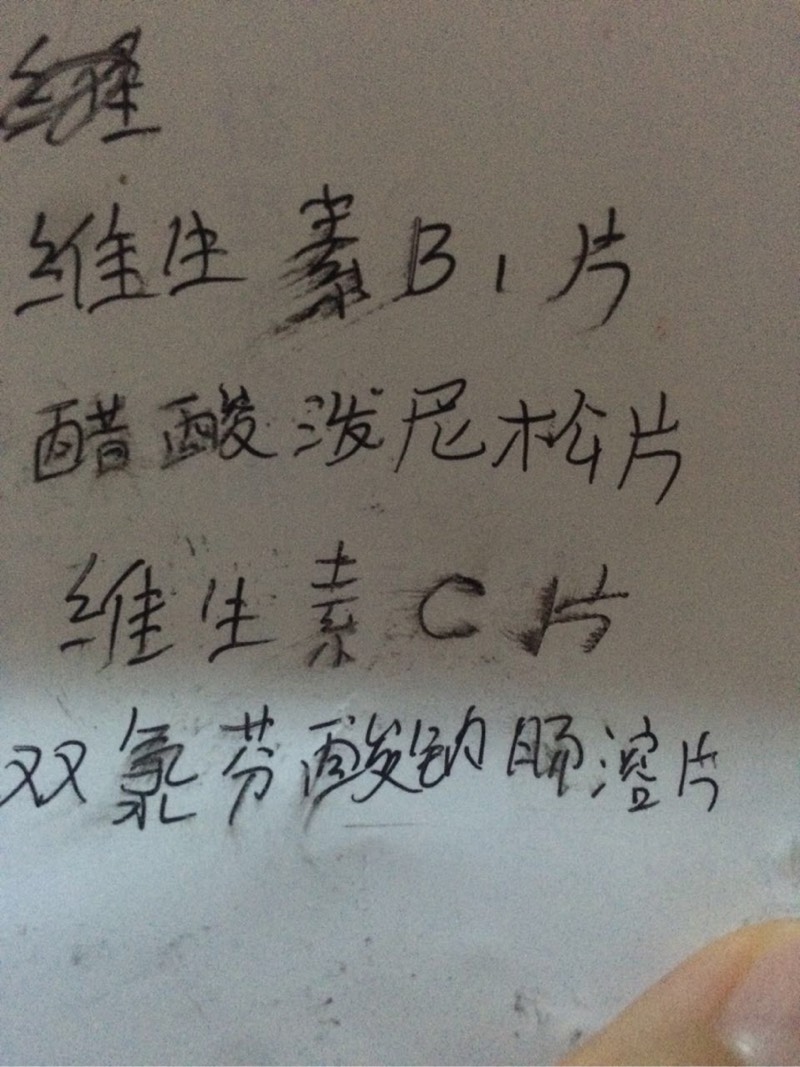 维生素B1片
醋酸泼尼松片
维生素C片
双氯芬酸钠肠溶片